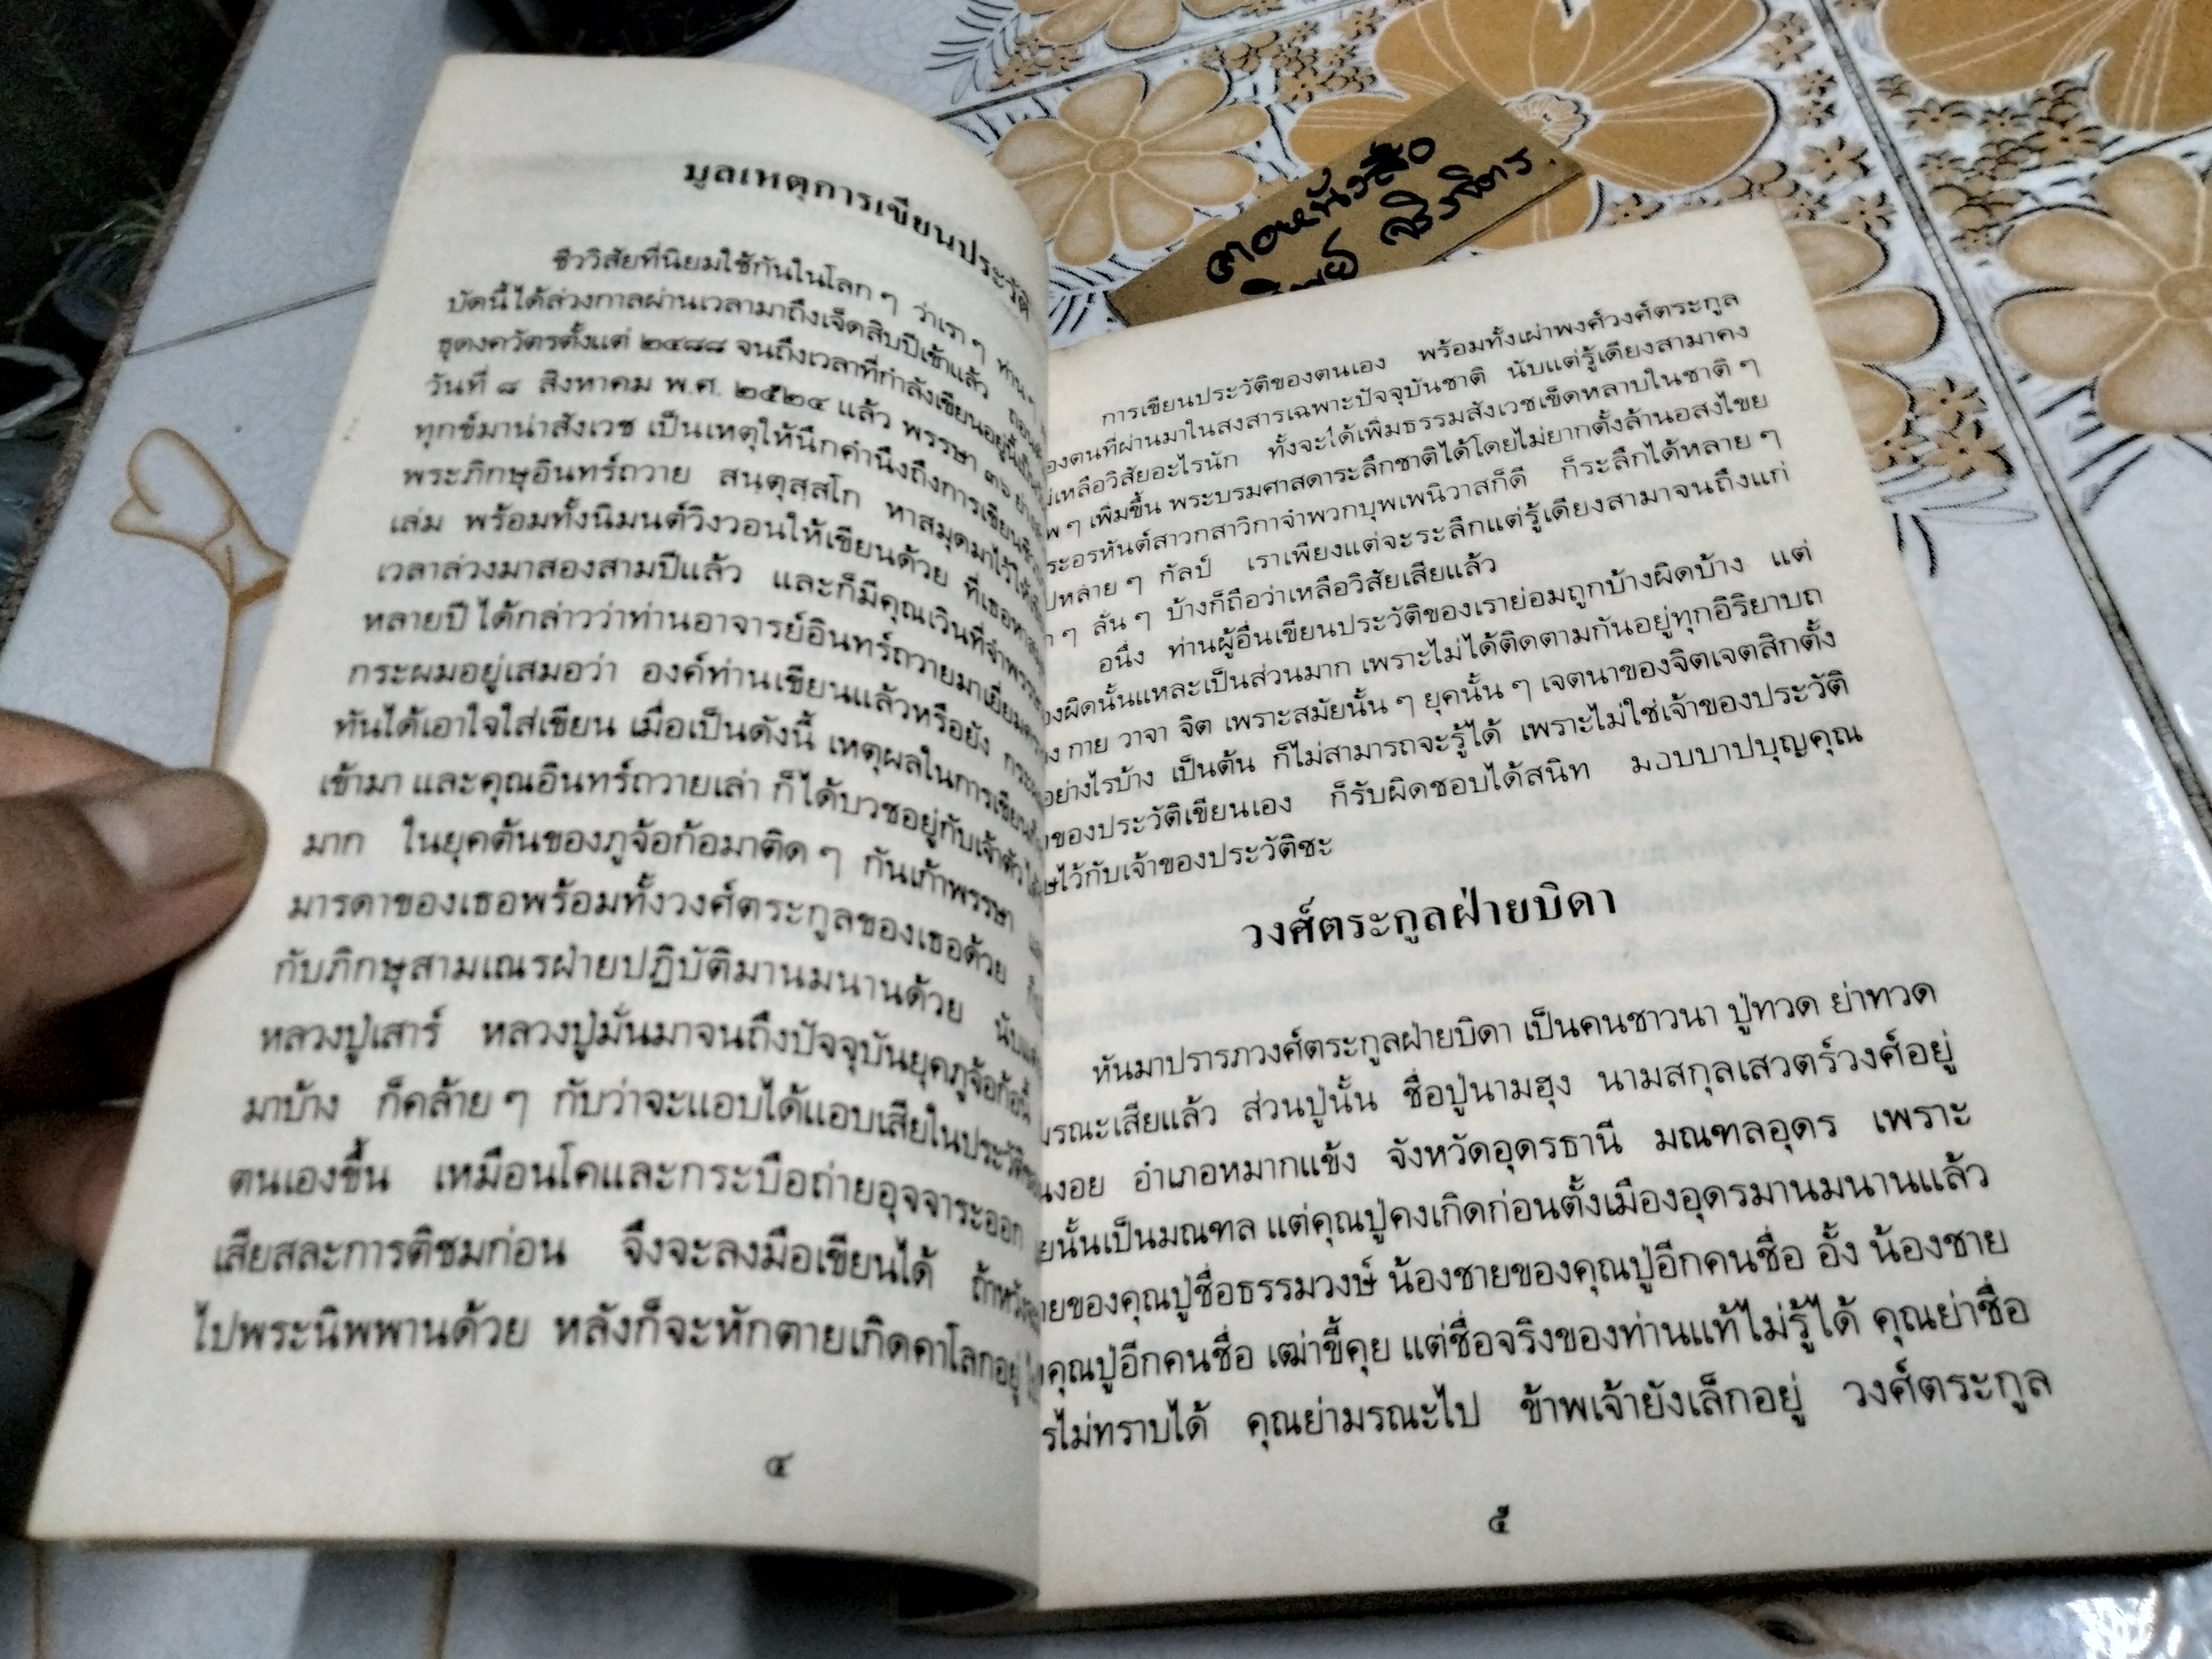 มูลเหตุการเขียนประวัติ
ชีววิสัยที่นิยมใช้กันในโลก ๆ ว่าเรา ๆ ท่าน ๆ
บัดนี้ได้ล่วงกาลผ่านเวลามาถึงเจ็ดสิบปีเข้าแล้ว
ธุดงควัตรตั้งแต่ ๒๔๘๘ จนถึงเวลาที่กำลังเขียนอยู่นี้
วันที่ ๘ สิงหาคม พ.ศ. ๒๕๒๔ แล้ว พรรษา ๓๖
ทุกข์มาน่าสังเวช เป็นเหตุให้นึกคำนึงถึงการเขียน
พระภิกษุอินทร์ถวาย สนฺตุสฺสโก หาสมุดมาไว้ให้
เล่ม พร้อมทั้งนิมนต์วิงวอนให้เขียนด้วย ที่เธอหา
เวลาล่วงมาสองสามปีแล้ว และก็มีคุณเวินที่จำพรรษา
หลายปี ได้กล่าวว่าท่านอาจารย์อินทร์ถวายมาเยี่ยม
กระผมอยู่เสมอว่า องค์ท่านเขียนแล้วหรือยัง
ทันได้เอาใจใส่เขียน เมื่อเป็นดังนี้ เหตุผลในการเขียน
เข้ามา และคุณอินทร์ถวายเล่า ก็ได้บวชอยู่กับเจ้าตัว
มาก ในยุคต้นของภูจ้อก้อมาติด ๆ กันเก้าพรรษา
มารดาของเธอพร้อมทั้งวงศ์ตระกูลของเธอด้วย
กับภิกษุสามเณรฝ่ายปฏิบัติมานมนานด้วย
หลวงปู่เสาร์ หลวงปู่มั่นมาจนถึงปัจจุบันยุคภูจ้อก้อนี้
มาบ้าง ก็คล้าย ๆ กับว่าจะแอบได้แอบเสียในประวัติ
ตนเองขึ้น เหมือนโคและกระบือถ่ายอุจจาระออก
เสียสละการติชมก่อน จึงจะลงมือเขียนได้
ไปพระนิพพานด้วย หลังก็จะหักตายเกิดคาโลกอยู่
๔
การเขียนประวัติของตนเอง พร้อมทั้งเผ่าพงศ์วงศ์ตระกูล
ของตนที่ผ่านมาในสงสารเฉพาะปัจจุบันชาติ นับแต่รู้เดียงสามาคง
เหลือวิสัยอะไรนัก ทั้งจะได้เพิ่มธรรมสังเวชเข็ดหลาบในชาติ ๆ
ๆ เพิ่มขึ้น พระบรมศาสดาระลึกชาติได้โดยไม่ยากตั้งล้านอสงไขย
พระอรหันต์สาวกสาวิกาจำพวกบุพเพนิวาสก็ดี ก็ระลึกได้หลาย ๆ
หลาย ๆ กัลป์ เราเพียงแต่จะระลึกแต่รู้เดียงสามาจนถึงแก่
ๆ ลั่น ๆ บ้างก็ถือว่าเหลือวิสัยเสียแล้ว
อนึ่ง ท่านผู้อื่นเขียนประวัติของเราย่อมถูกบ้างผิดบ้าง แต่
ผิดนั้นแหละเป็นส่วนมาก เพราะไม่ได้ติดตามกันอยู่ทุกอิริยาบถ
กาย วาจา จิต เพราะสมัยนั้น ๆ ยุคนั้น ๆ เจตนาของจิตเจตสิกตั้ง
อย่างไรบ้าง เป็นต้น ก็ไม่สามารถจะรู้ได้ เพราะไม่ใช่เจ้าของประวัติ
ของประวัติเขียนเอง ก็รับผิดชอบได้สนิท มอบบาปบุญคุณ
ไว้กับเจ้าของประวัติซะ
วงศ์ตระกูลฝ่ายบิดา
หันมาปรารภวงศ์ตระกูลฝ่ายบิดา เป็นคนชาวนา ปู่ทวด ย่าทวด
มรณะเสียแล้ว ส่วนปู่นั้น ชื่อปู่นามฮุง นามสกุลเสวตร์วงศ์อยู่
อำเภอหมากแข้ง จังหวัดอุดรธานี มณฑลอุดร เพราะ
นั้นเป็นมณฑล แต่คุณปู่คงเกิดก่อนตั้งเมืองอุดรมานมนานแล้ว
ของคุณปู่ชื่อธรรมวงษ์ น้องชายของคุณปู่อีกคนชื่อ อั้ง น้องชาย
คุณปู่อีกคนชื่อ เฒ่าขี้คุย แต่ชื่อจริงของท่านแท้ไม่รู้ได้ คุณย่าชื่อ
ไม่ทราบได้ คุณย่ามรณะไป ข้าพเจ้ายังเล็กอยู่ วงศ์ตระกูล
๕